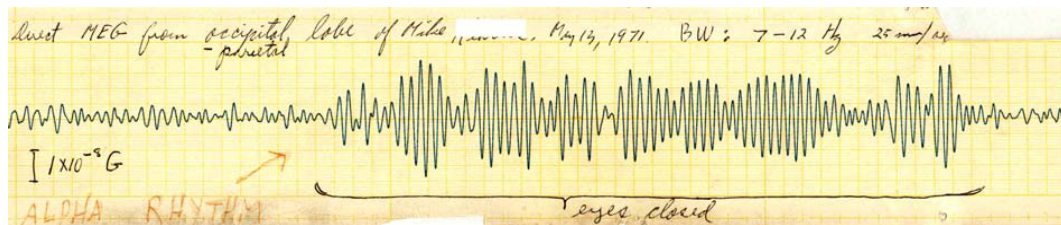 Direct MEG from occipital lobe of Mike May 13, 1971. BW: 7-12 Hz 25 mm/sec
- parietal
[ 1x10⁻⁸ G
ALPHA RHYTHM
eyes closed